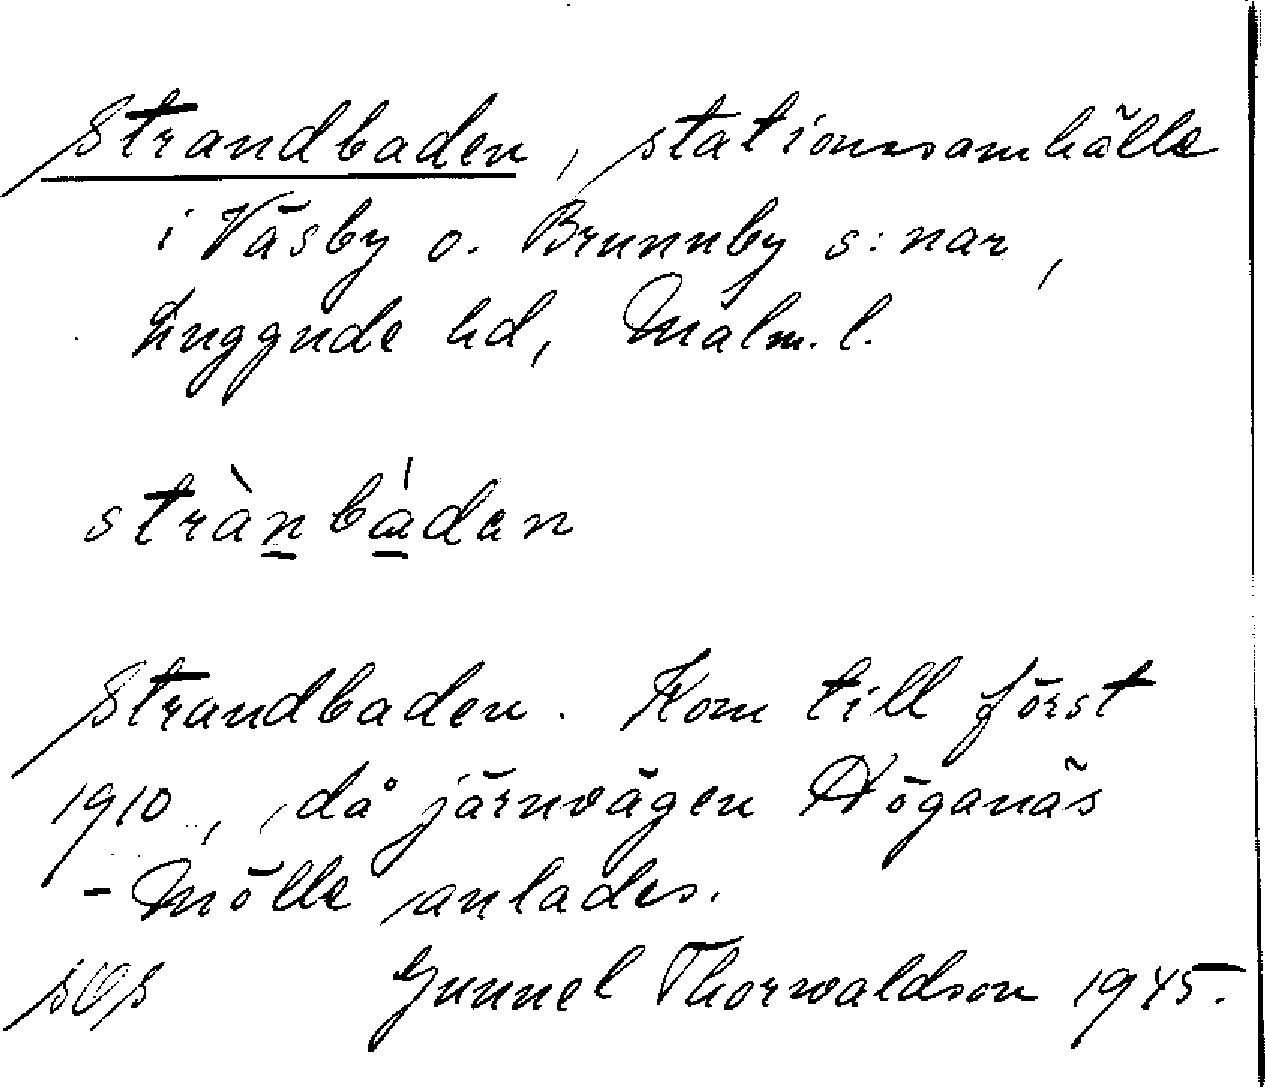 Strandbaden, stationssamhälle
i Väsby o. Brunnby s:nar,
Luggude hd, Malm. l.
strànbáden
Strandbaden. Kom till först
1910, då järnvägen Höganäs
- Mölle anlades.
Gunnel Thorwaldson 1945.